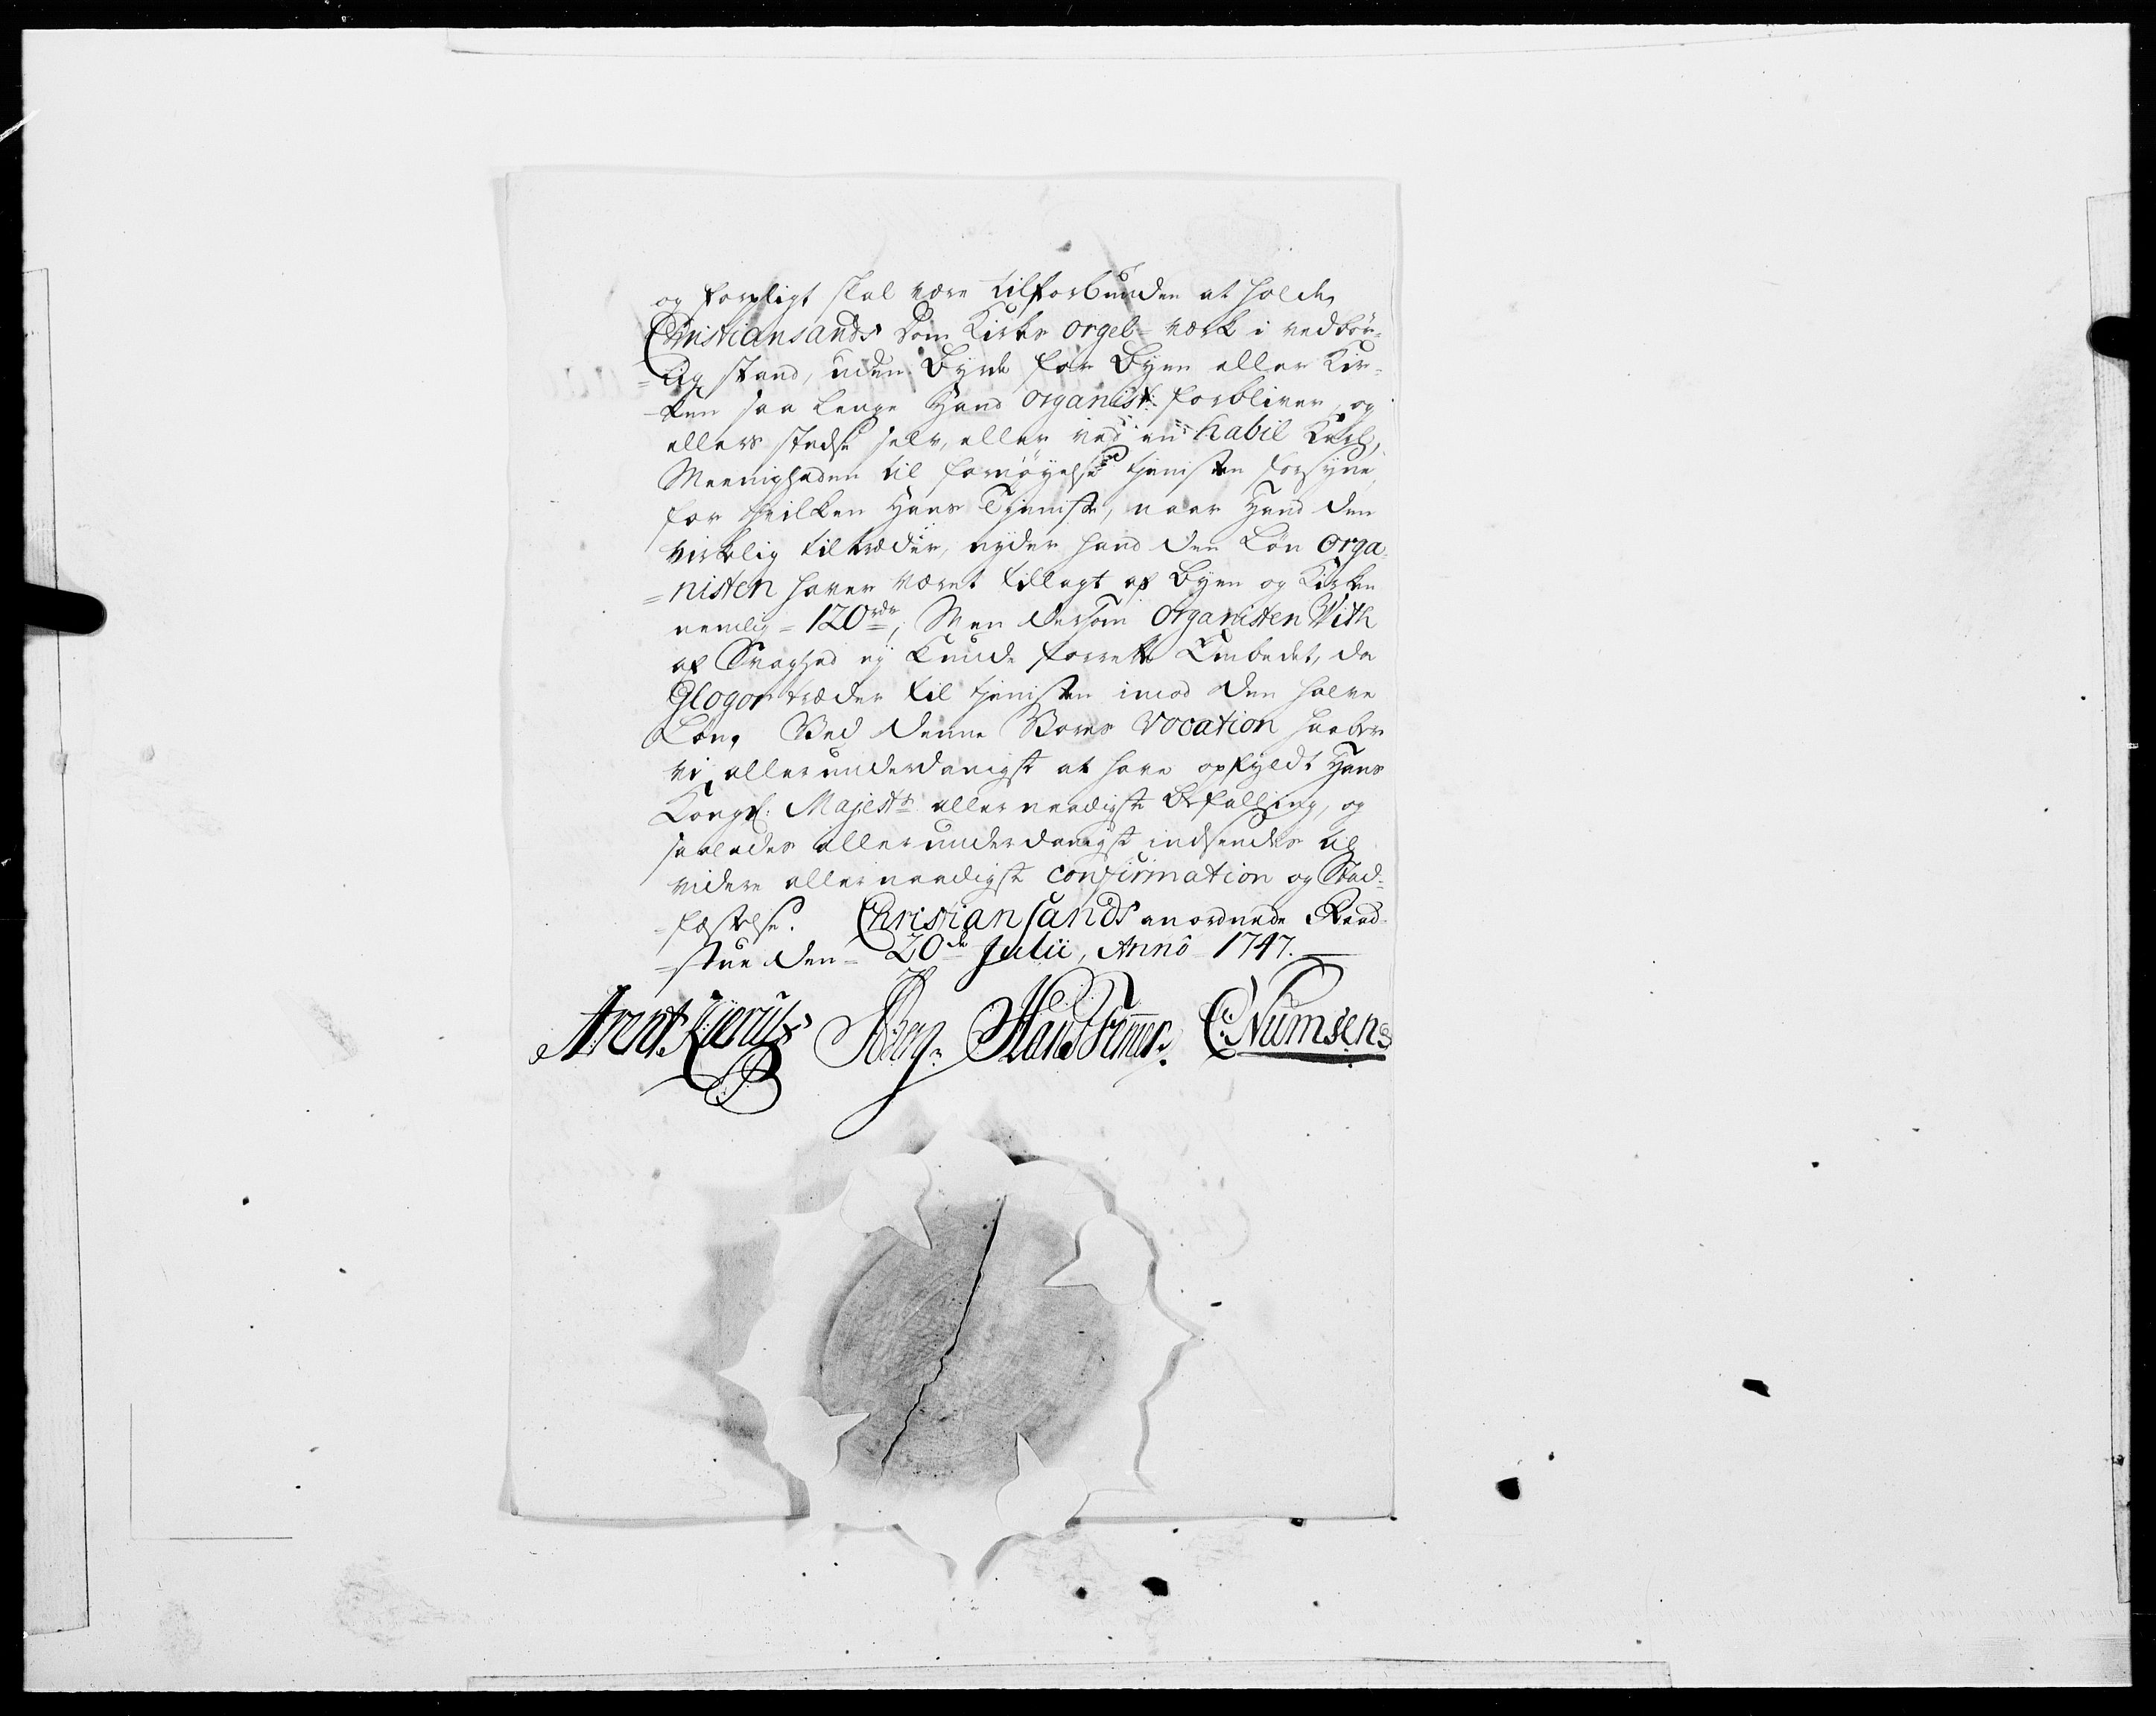 og forpligt skal være tilforbunden at holde
Christiansands Dom Kirkes orgel-værk i vedbör-
=lig stand, uden Byrde for Byen eller Kir-
ken saa lenge Hand organist forbliver, og
ellers stedse selv, eller ved en habil Karl,
Meenigheden til fornøyelse tienisten forsyne,
for hvilken Hans Tieniste, naar Hand den
virkelig tiltræder, nyder hand den Løn Orga-
=nisten haver været tillagt af Byen og Kirken
nemlig = 120 rdr; Men dersom Organisten With
af Svaghed ej kunde forrette Embedet, da
Glogor træder til tienisten imod den halve
Løn. Ved denne Vores Vocation haaber
vi allerunderdanigst at have opfyldt Hans
Kongl: Majestts allernaadigste Befalling, og
saaledes allerunderdanigst indsendes til
videre allernaadigst confirmation og Stad-
=fæstelse. Christiansands anordnede Raad-
=stue den = 20de Julii, Anno 1747.
Arent Berg Hans C. Numsen